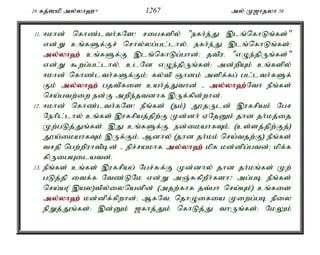 28 கத்ஸமி அல்லாஹு 1267 அல் முஜாதலா 58
11. ஈமான் கொண்டவர்களே! சபைகளில் "நகர்ந்து இடங்கொடுங்கள்"
என்று உங்களுக்குச் சொல்லப்பட்டால், நகர்ந்து இடங்கொடுங்கள்;
அல்லாஹ் உங்களுக்கு இடங்கொடுப்பான்; தவிர, "எழுந்திருங்கள்"
என்று கூறப்பட்டால், உடனே எழுந்திருங்கள்; அன்றியும் உங்களில்
ஈமான் கொண்டவர்களுக்கும்; கல்வி ஞானம் அளிக்கப் பட்டவர்களுக்
கும் அல்லாஹ் பதவிகளை உயர்த்துவான் - அல்லாஹ்வோ நீங்கள்
செய்பவற்றை நன்கு அறிந்தவனாக இருக்கின்றான்.
12. ஈமான் கொண்டவர்களே! நீங்கள் (நம்) தூதருடன் இரகசியம் பேச
நேரிட்டால் உங்கள் இரகசியத்திற்கு முன்னர் ஏதேனும் தான தர்மத்தை
முற்படுத்துங்கள். இது உங்களுக்கு நன்மையாகவும், (உள்ளத்திற்குத்)
தூய்மையாகவும் இருக்கும். ஆனால் (தான தர்மம் செய்வதற்கு) நீங்கள்
வசதி பெற்றிராவிடின் - நிச்சயமாக அல்லாஹ் மிக மன்னிப்பவன்; மிக்க
கிருபையுடையவன்.
13. நீங்கள் உங்கள் இரகசியப் பேச்சுக்கு முன்னால் தான தர்மங்கள் முற்
படுத்தி வைக்க வேண்டுமே என்று அஞ்சுகிறீர்களா? அப்படி நீங்கள்
செய்ய(இயல)வில்லையெனின் (அதற்காக தவ்பா செய்யும்) உங்களை
அல்லாஹ் மன்னிக்கிறான்; ஆகவே, தொழுகையை முறைப்படி நிலை
நிறுத்துங்கள்; இன்னும் ஜகாத்தும் கொடுத்து வாருங்கள்; மேலும்